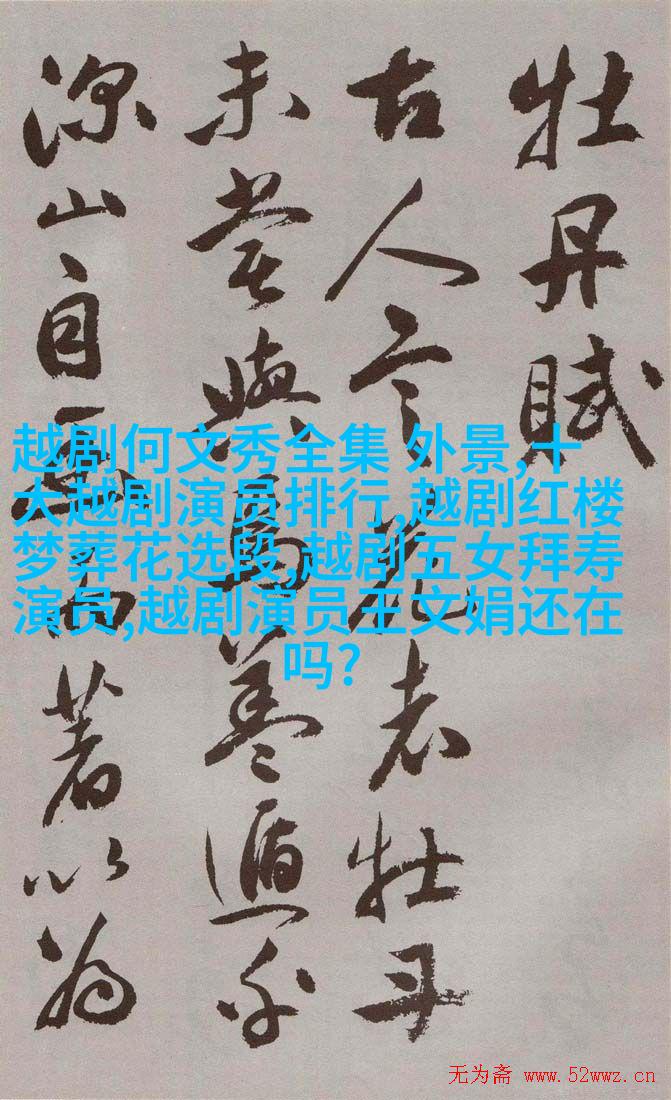 牡丹賦
古人言花者牡丹
未嘗與焉盖遁乎
深山自幽而著以為
越剧何文秀全集 外景,十
大越剧演员排行,越剧红楼
梦葬花选段,越剧五女拜寿
演员,越剧演员王文娟还在
吗?
无为斋 www.52wwz.cn